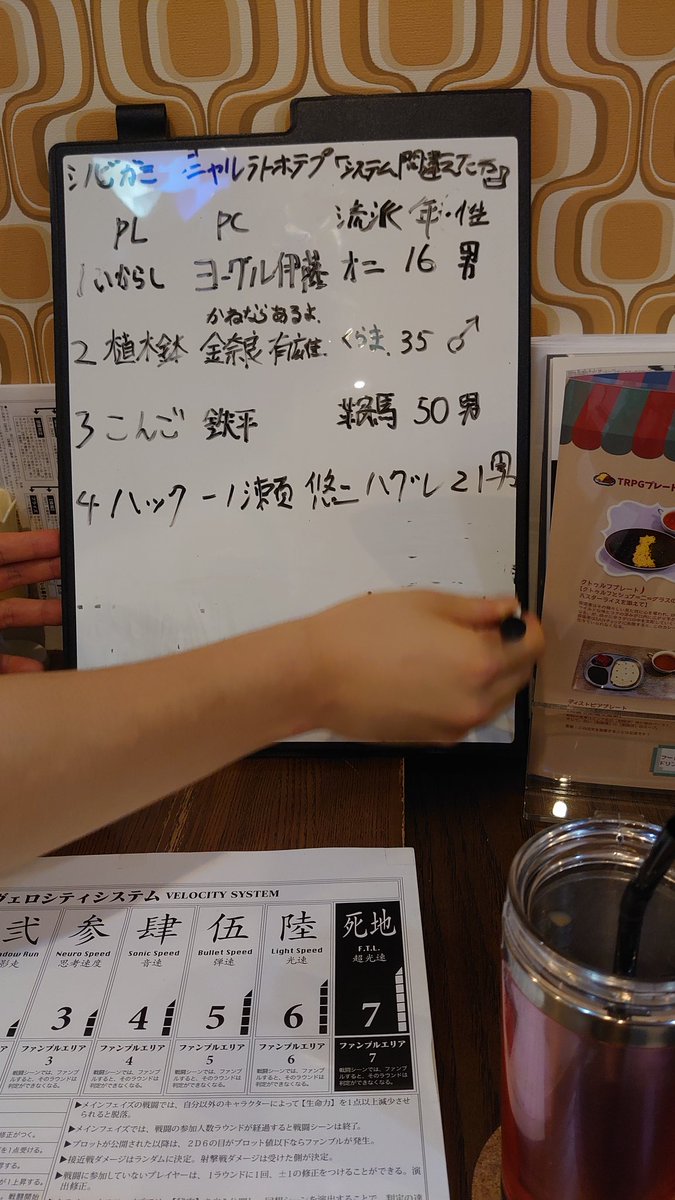 シノビガミ ニャルラトホテプ「システム間違えてた」
PL PC 流派 年・性
1 いがらし ヨーグル伊藤 オニ 16 男
かねならあるよ、
2 植木鉢 金奈良 有広佳 くらま 35 ♂
3 こんご 鉄平 鞍馬 50 男
4 ハック 一ノ瀬 悠二 ハグレ 21 男
TRPGプレート
クトゥルフプレート
ディストピアプレート
ヴェロシティシステム VELOCITY SYSTEM
弐 参 肆 伍 陸 死地
Neuro Speed Sonic Speed Bullet Speed Light Speed F.T.L.
影走 思考速度 音速 弾速 光速 超光速
3 4 5 6 7
ファンブルエリア ファンブルエリア ファンブルエリア ファンブルエリア ファンブルエリア
3 4 5 6 7
戦闘シーンでは、ファンブルすると、そのラウンドは判定ができなくなる。
▶メインフェイズの戦闘では、自分以外のキャラクターによって【生命力】を1点以上減少させられると脱落。
▶メインフェイズでは、戦闘の参加人数ラウンドが経過すると戦闘シーンは終了。
▶プロットが公開された以降は、2D6の目がプロット値以下ならファンブルが発生。
▶接近戦ダメージはランダムに決定。射撃戦ダメージは受けた側が決定。
▶戦闘に参加していないプレイヤーは、1ラウンドに1回、±1の修正をつけることができる。演出修正。